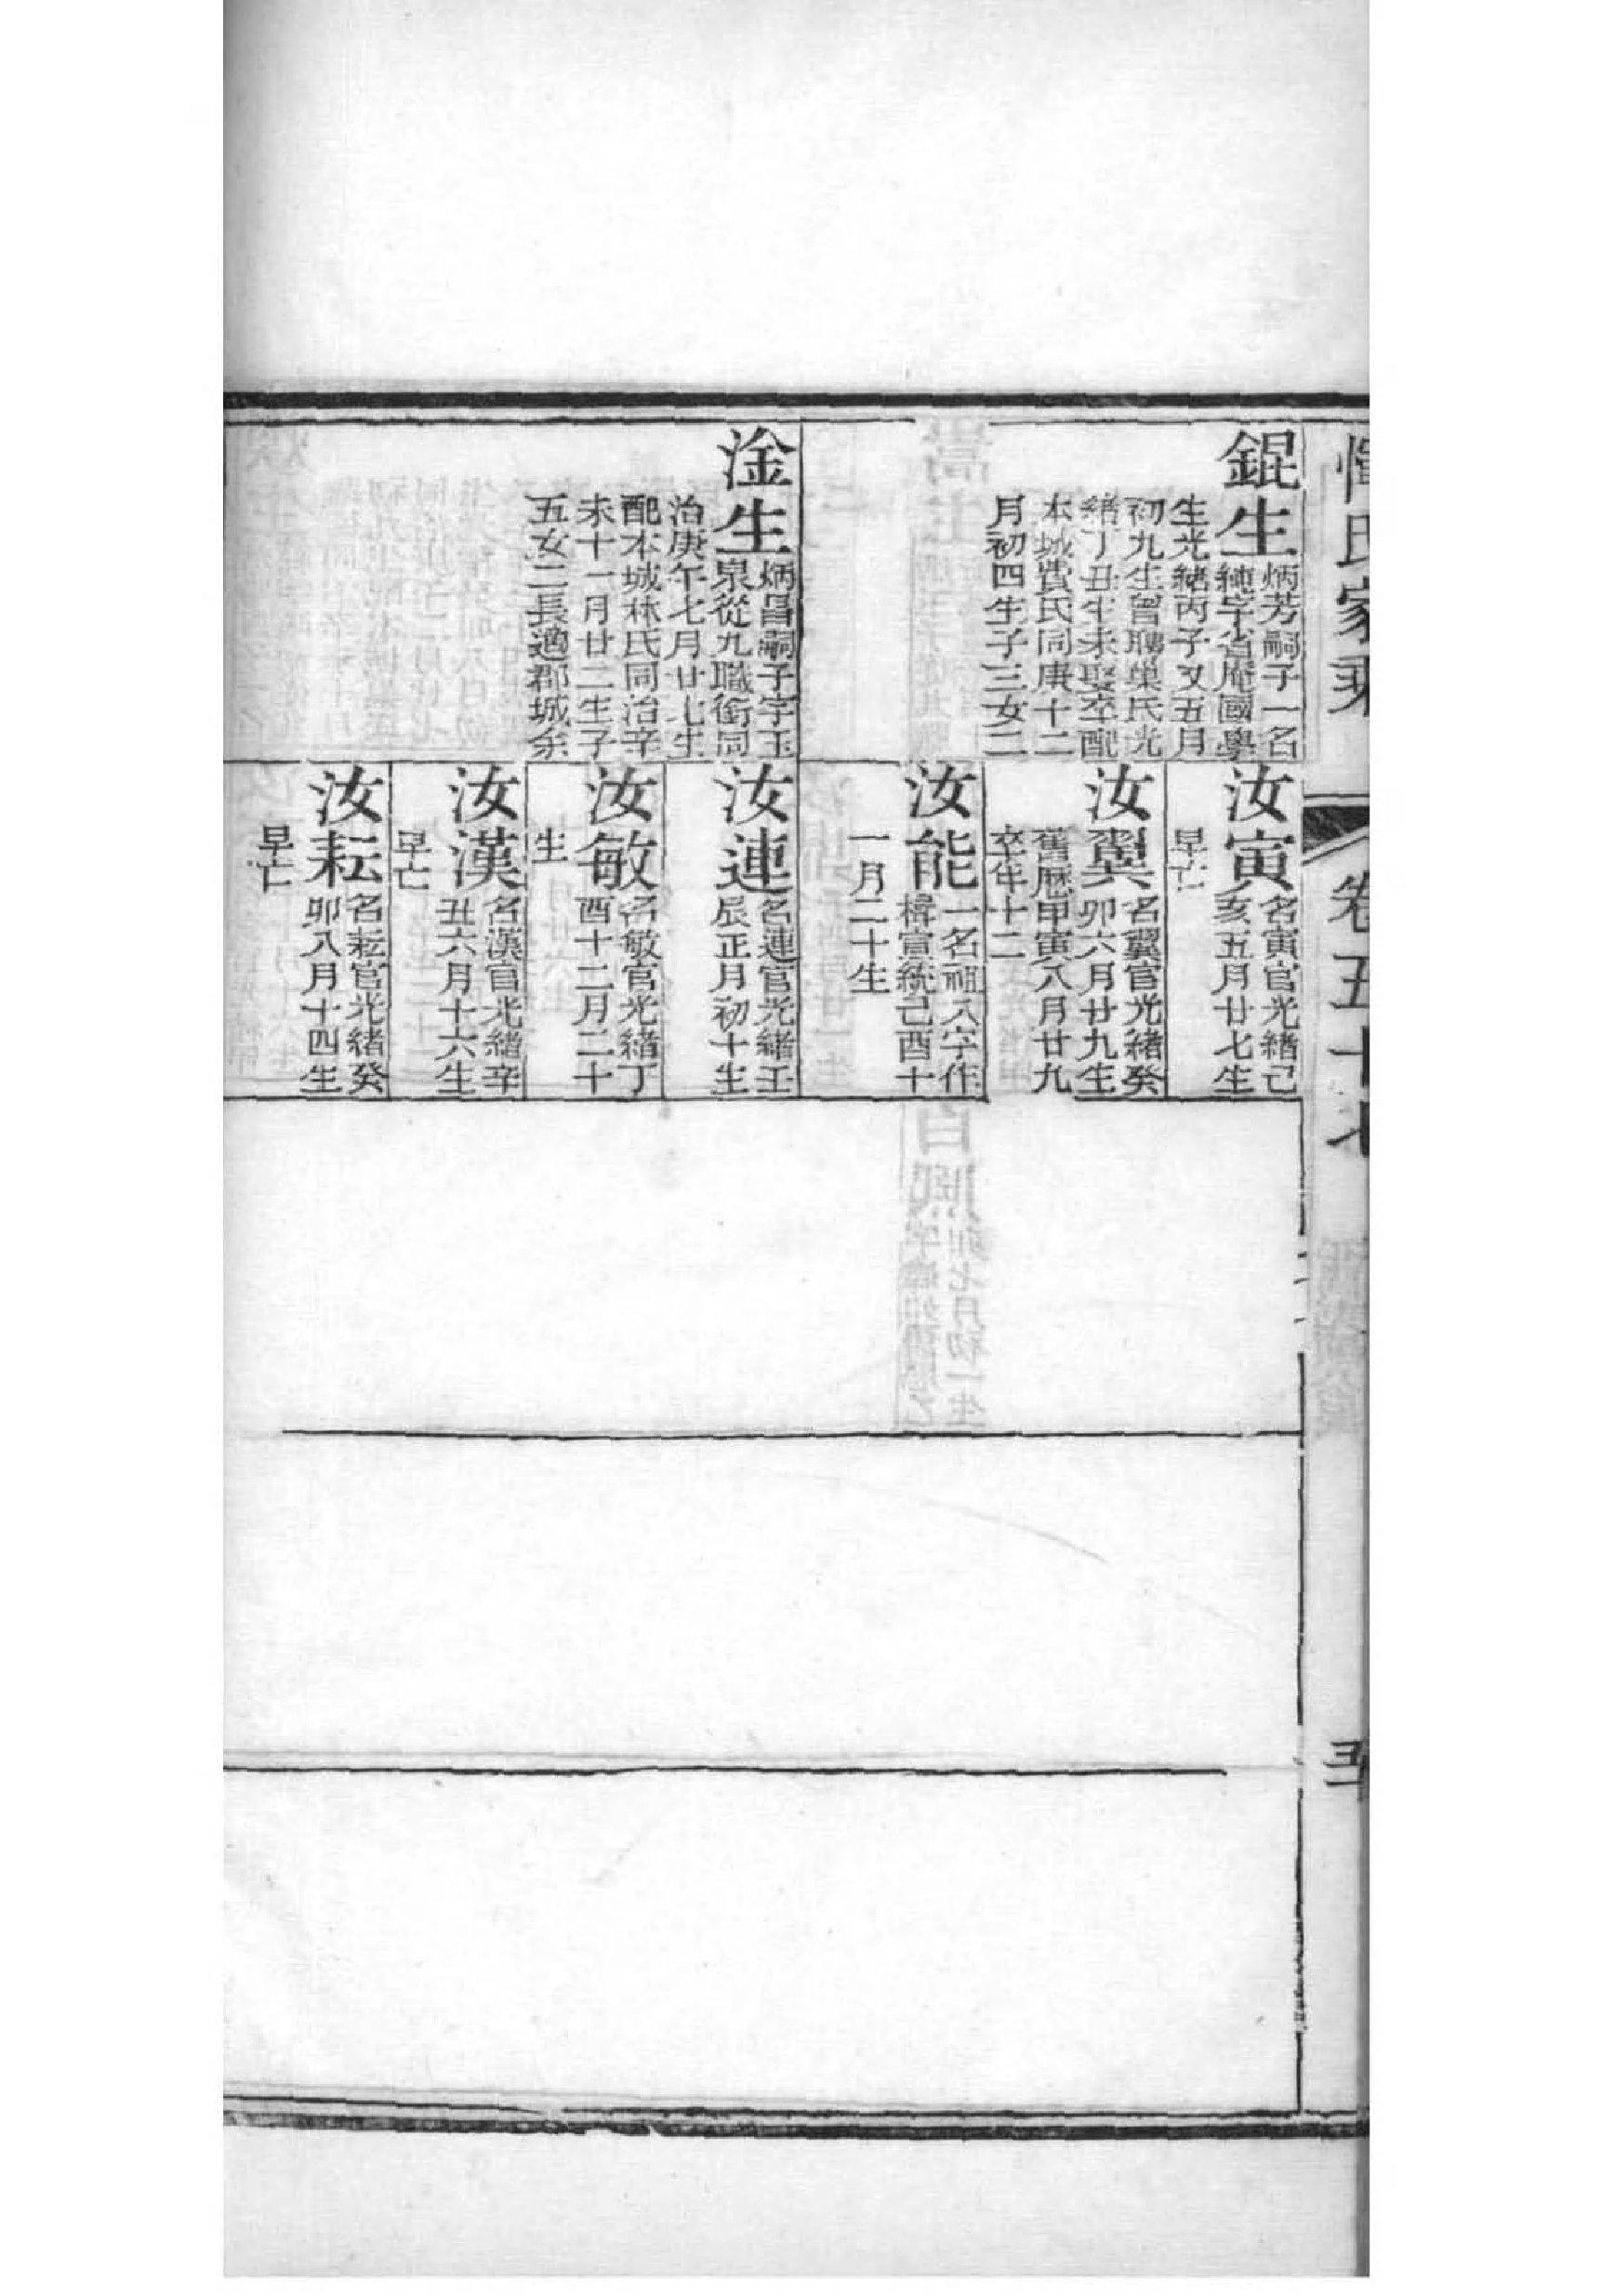 惲氏家乘
卷五十七
錕生
炳芳嗣子一名
純字省庵國學
生光緒丙子又五月
初九生曾聘巢氏光
緒丁丑生未娶卒配
本城費氏同庚十二
月初四生子三女二
汝寅
名寅官光緒己
亥五月廿七生
早亡
汝翼
名翼官光緒癸
卯六月廿九生
舊曆甲寅八月廿九
卒年十二
汝能
一名 入字作
楫宣統己酉十
一月二十生
淦生
炳昌嗣子字玉
泉從九職銜同
治庚午七月廿七生
配本城林氏同治辛
未十一月廿二生子
五女二長適郡城余
汝連
名連官光緒壬
辰正月初十生
汝敏
名敏官光緒丁
酉十二月二十
生
汝漢
名漢官光緒辛
丑六月十六生
早亡
汝耘
名耘官光緒癸
卯八月十四生
早亡